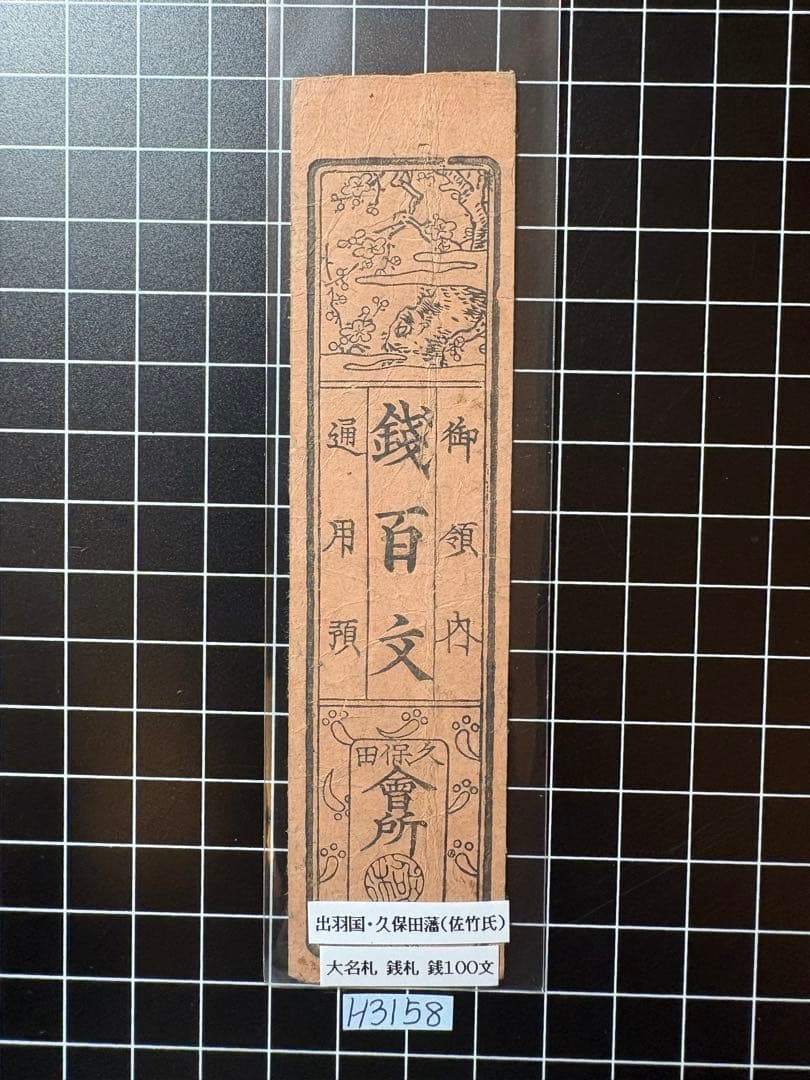 御領内
錢百文
通用預
久保田
會所
出羽国・久保田藩(佐竹氏)
大名札 銭札 銭100文
H3158